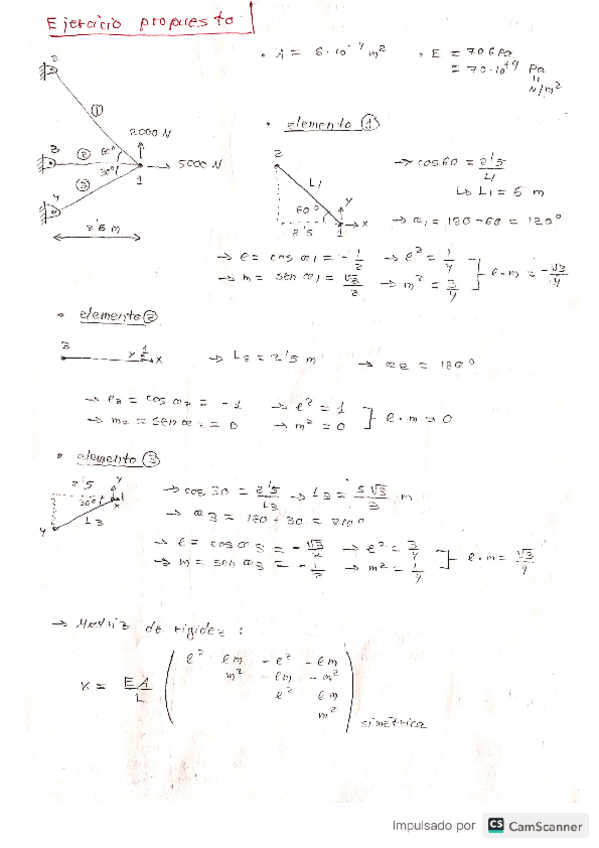 Ejercicio propuesto
• A = 6·10⁻⁴ m²   • E = 70 GPa
= 70·10⁺⁹ Pa
N/m²
2
①
2000 N
3 ② 60°
30°
5000 N
③ 1
4
2'5 m
• elemento ①
2
L₁
60°
y
x
2'5 1
→ cos 60 = 2'5/L₁
↳ L₁ = 5 m
→ α₁ = 180 - 60 = 120°
→ l = cos α₁ = -1/2 → l² = 1/4
→ m = sen α₁ = √3/2 → m² = 3/4 ] l·m = -√3/4
• elemento ②
3 y 1 x → L₂ = 2'5 m → α₂ = 180°
→ l₂ = cos α₂ = -1 → l² = 1
→ m₂ = sen α₂ = 0 → m² = 0 ] l·m = 0
• elemento ③
2'5 y
30° 1
x
L₃
4
→ cos 30 = 2'5/L₃ → L₃ = 5√3/3 m
→ α₃ = 180 + 30 = 210°
→ l = cos α₃ = -√3/2 → l² = 3/4
→ m = sen α₃ = -1/2 → m² = 1/4 ] l·m = √3/4
→ Matriz de rigidez :
K = EA/L
l² lm -l² -lm
m² -lm -m²
l² lm
m²
simétrica
Impulsado por CS CamScanner